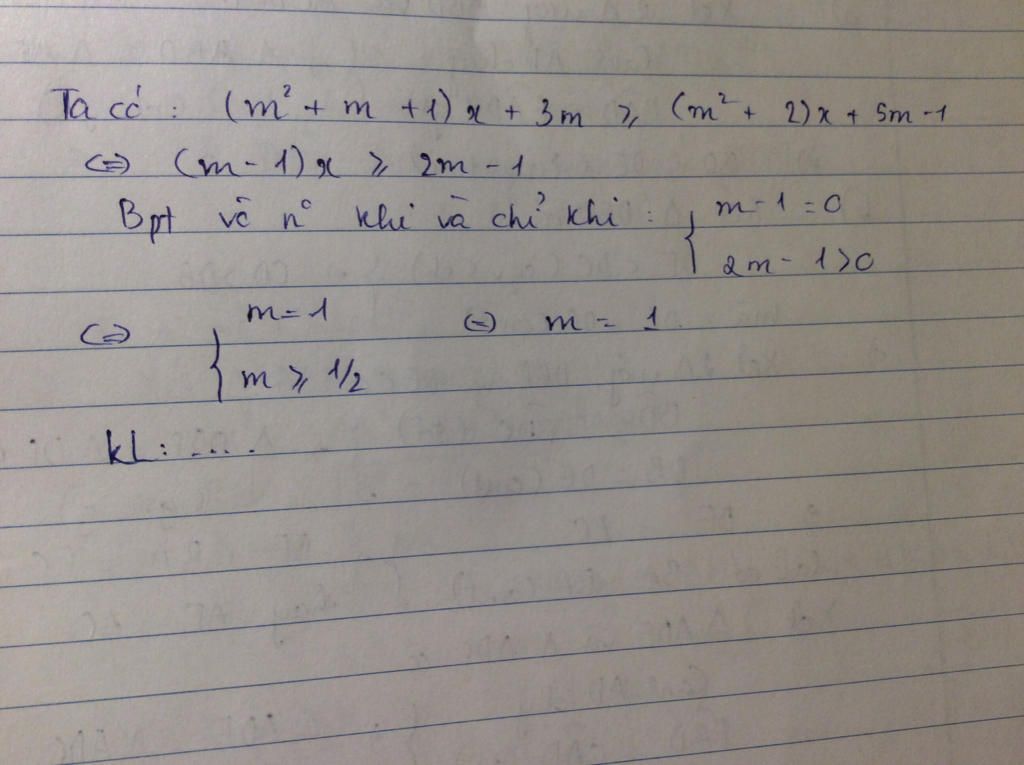 Ta có : (m² + m + 1) x + 3m ⩾ (m² + 2)x + 5m - 1
(=) (m - 1) x ⩾ 2m - 1
Bpt vô n° khi và chỉ khi : { m - 1 = 0
2m - 1 > 0
(=) { m = 1 (=) m = 1
m ⩾ 1/2
kL : ....